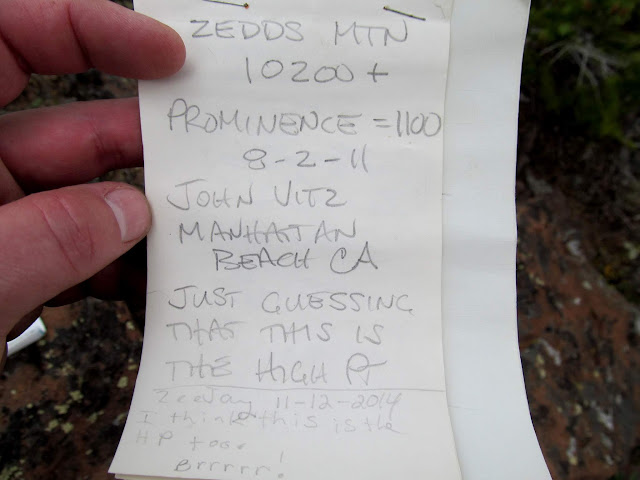 ZEDDS MTN
10200+
PROMINENCE = 1100
8-2-11
JOHN VITZ
MANHATTAN
BEACH CA
JUST GUESSING
THAT THIS IS
THE HIGH PT
ZeeJay 11-12-2014
I think this is the
HP too.
Brrrrr!